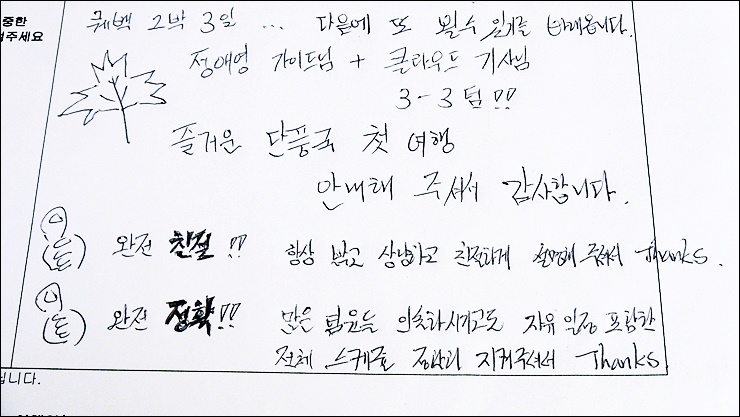 중한
퀘백 2박 3일 ... 다음에 또 뵐수 있기를 바래봅니다.
주세요
정애영 가이드님 + 클라우드 기사님
3-3팀!!
즐거운 단풍국 첫 여행
안내해 주셔서 감사합니다.
완전 친절!! 항상 밝고 상냥하고 친절하게 설명해 주셔서 Thanks.
완전 정확!! 많은 인원을 인솔하시고도 자유 일정 포함한
전체 스케줄 정확히 지켜주셔서 Thanks.
니다.